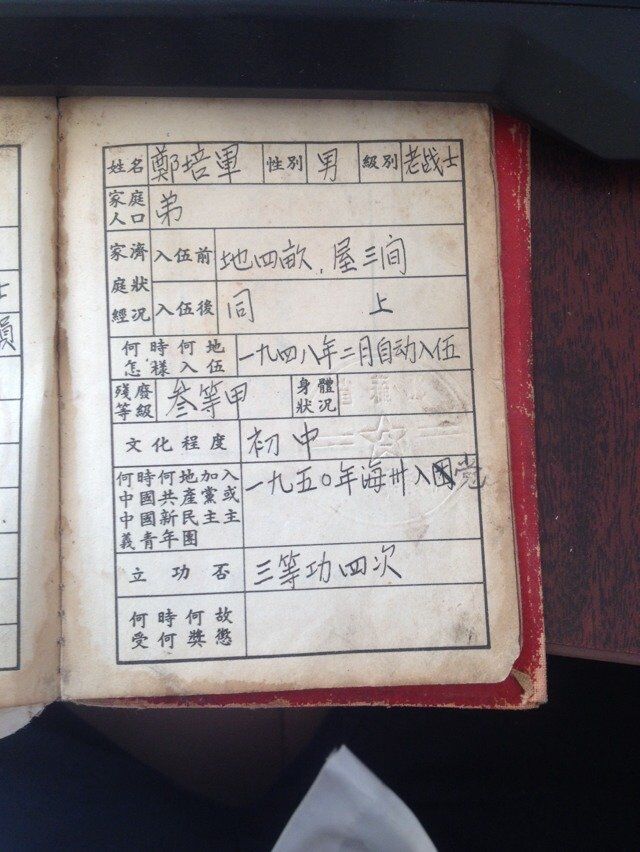 姓名 鄭培軍 性別 男 級別 老战士
家庭人口 弟
家庭經濟狀況 入伍前 地四畝，屋三间
入伍後 同 上
何時何地怎樣入伍 一九四八年二月自动入伍
殘廢等級 叁等甲 身體狀況
文化程度 初中
何時何地加入
中國共產黨或
中國新民主主
義青年團 一九五〇年海卅入党
立功否 三等功四次
何時何故
受何獎懲